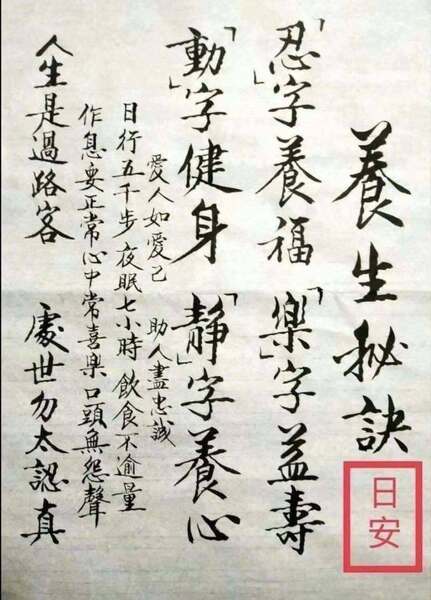 養生秘訣
「忍」字養福 「樂」字益壽
「動」字健身 「靜」字養心
愛人如愛己 助人盡忠誠
日行五千步 夜眠七小時 飲食不逾量
作息要正常 心中常喜樂 口頭無怨聲
人生是過路客 處世勿太認真
日安